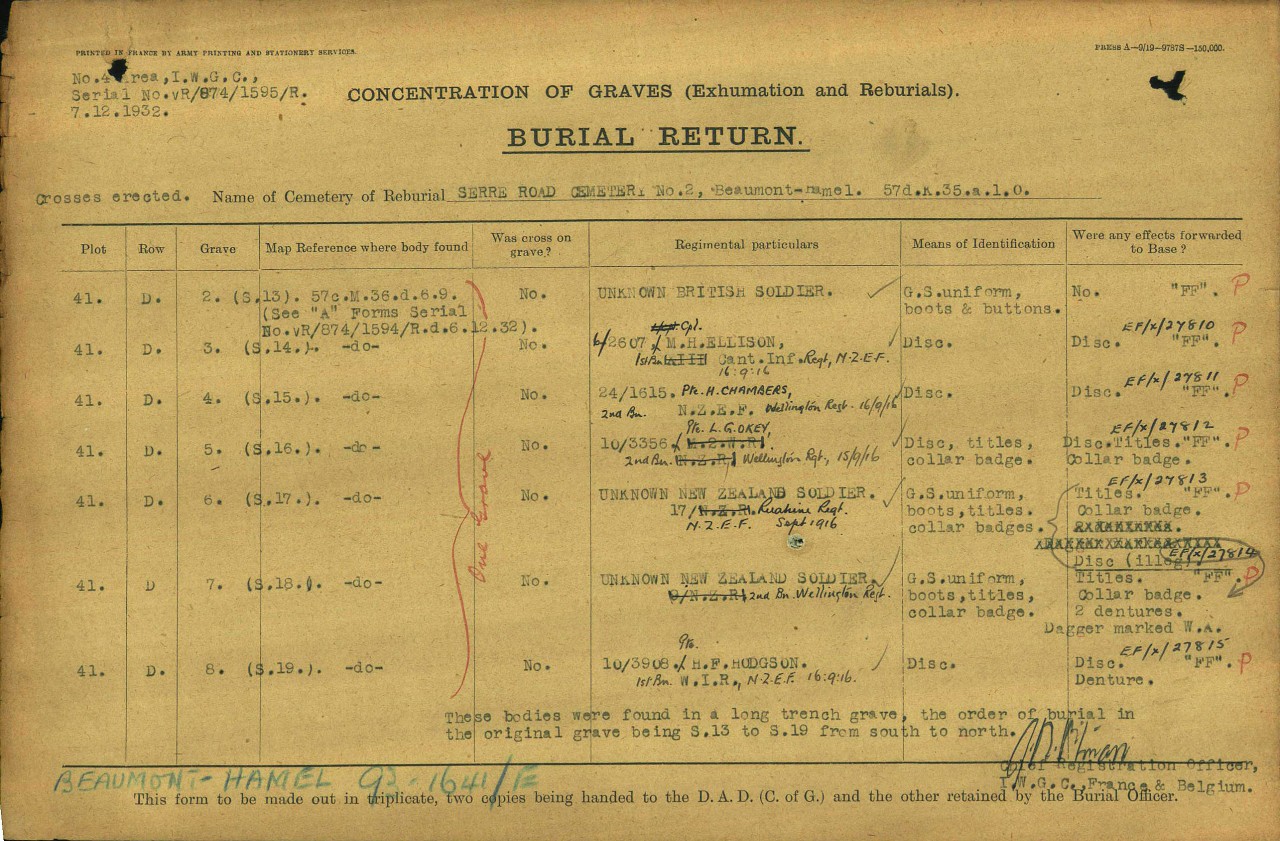 PRINTED IN FRANCE BY ARMY PRINTING AND STATIONERY SERVICES.
PRESS A—9/19—9787S—150,000.
No.4 Area, I.W.G.C.,
Serial No.vR/874/1595/R.
7.12.1932.
CONCENTRATION OF GRAVES (Exhumation and Reburials).
BURIAL RETURN.
Crosses erected. Name of Cemetery of Reburial SERRE ROAD CEMETERY No.2, Beaumont-hamel. 57d.K.35.a.1.0.
Plot Row Grave Map Reference where body found Was cross on grave? Regimental particulars Means of Identification Were any effects forwarded to Base?
41. D. 2. (S.13). 57c.M.36.d.6.9. No. UNKNOWN BRITISH SOLDIER. G.S.uniform, No. "FF". P
(See "A" Forms Serial boots & buttons.
No.vR/874/1594/R.d.6.12.32).
Cpl. EF/x/27810
41. D. 3. (S.14.). -do- No. 6/2607, M.H.ELLISON, Disc. Disc. "FF". P
1st Bn. XIII Cant.Inf.Regt, N.Z.E.F.
16.9.16
EF/x/27811
41. D. 4. (S.15.). -do- No. 24/1615. Pte. H. CHAMBERS, Disc. Disc. "FF". P
2nd Bn. N.Z.E.F. Wellington Regt. 16/9/16
Pte. L. G. OKEY, EF/x/27812
41. D. 5. (S.16.). -do- No. 10/3356, Disc, titles, Disc.Titles."FF". P
2nd Bn. N.Z.R. Wellington Rgt., 15/9/16 collar badge. Collar badge.
EF/x/27813
41. D. 6. (S.17.). -do- No. UNKNOWN NEW ZEALAND SOLDIER. G.S.uniform, Titles. "FF". P
17/N.Z.R. Ruahine Regt. boots, titles. Collar badge.
N.Z.E.F. Sept 1916 collar badges.
Disc (illeg). EF/x/27814
41. D 7. (S.18.). -do- No. UNKNOWN NEW ZEALAND SOLDIER. G.S.uniform, Titles. "FF". P
9/N.Z.R. 2nd Bn. Wellington Regt. boots,titles, Collar badge.
collar badge. 2 dentures.
Dagger marked W.A.
Pte. EF/x/27815
41. D. 8. (S.19.). -do- No. 10/3908. H.F.HODGSON. Disc. Disc. "FF". P
1st Bn. W.I.R., N.Z.E.F. 16.9.16. Denture.
One Grave
These bodies were found in a long trench grave, the order of burial in
the original grave being S.13 to S.19 from south to north.
Chief Registration Officer,
I.W.G.C.,France & Belgium.
BEAUMONT-HAMEL 93-1641/E
This form to be made out in triplicate, two copies being handed to the D. A. D. (C. of G.) and the other retained by the Burial Officer.